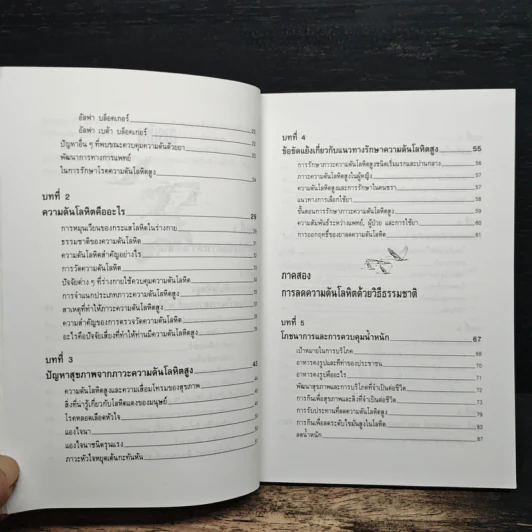 อัลฟา บล็อคเกอร์
อัลฟา เบต้า บล็อคเกอร์
ปัญหาอื่น ๆ ที่พบขณะควบคุมความดันด้วยยา
พัฒนาการทางการแพทย์
ในการรักษาโรคความดันโลหิตสูง
บทที่ 2
ความดันโลหิตคืออะไร 29
การหมุนเวียนของกระแสโลหิตในร่างกาย
ธรรมชาติของความดันโลหิต
ความดันโลหิตสำคัญอย่างไร
การวัดความดันโลหิต
ปัจจัยต่าง ๆ ที่ร่างกายใช้ควบคุมความดันโลหิต
การจำแนกประเภทภาวะความดันโลหิตสูง
สาเหตุที่ทำให้ภาวะความดันโลหิตสูง
ความสำคัญของการตรวจวัดความดันโลหิต
อะไรคือปัจจัยเสี่ยงที่ทำให้ท่านมีความดันโลหิตสูง
บทที่ 3
ปัญหาสุขภาพจากภาวะความดันโลหิตสูง
ความดันโลหิตสูงและความเสื่อมโทรมของสุขภาพ
สิ่งที่น่ารู้เกี่ยวกับโลหิตแดงของมนุษย์
โรคหลอดเลือดหัวใจ
แองไจนา
แองไจนาชนิดรุนแรง
ภาวะหัวใจหยุดเต้นกะทันหัน
บทที่ 4
ข้อขัดแย้งเกี่ยวกับแนวทางรักษาความดันโลหิตสูง 55
การรักษาภาวะความดันโลหิตสูงชนิดเริ่มแรกและปานกลาง 56
ภาวะความดันโลหิตสูงในผู้หญิง 56
ความดันโลหิตสูงและการรักษาในคนชรา
แนวทางการเลือกใช้ยา
ขั้นตอนการรักษาภาวะความดันโลหิตสูง 59
ความสัมพันธ์ระหว่างแพทย์, ผู้ป่วย และการใช้ยา 60
การออกฤทธิ์ของยาลดความดันโลหิต 61
ภาคสอง
การลดความดันโลหิตด้วยวิธีธรรมชาติ
บทที่ 5
โภชนาการและการควบคุมน้ำหนัก 67
เป้าหมายในการบริโภค 68
อาหารคงรูปและที่ทำของประชาชน
อาหารคงรูปคืออะไร
พัฒนาสุขภาพและการบริโภคที่จำเป็นต่อชีวิต
การกินเพื่อสุขภาพและสิ่งที่จำเป็นต่อชีวิต
การรับประทานที่ลดความดันโลหิตสูง 79
การกินเพื่อลดระดับไขมันสูงในโลหิต 83
ลดน้ำหนัก 87